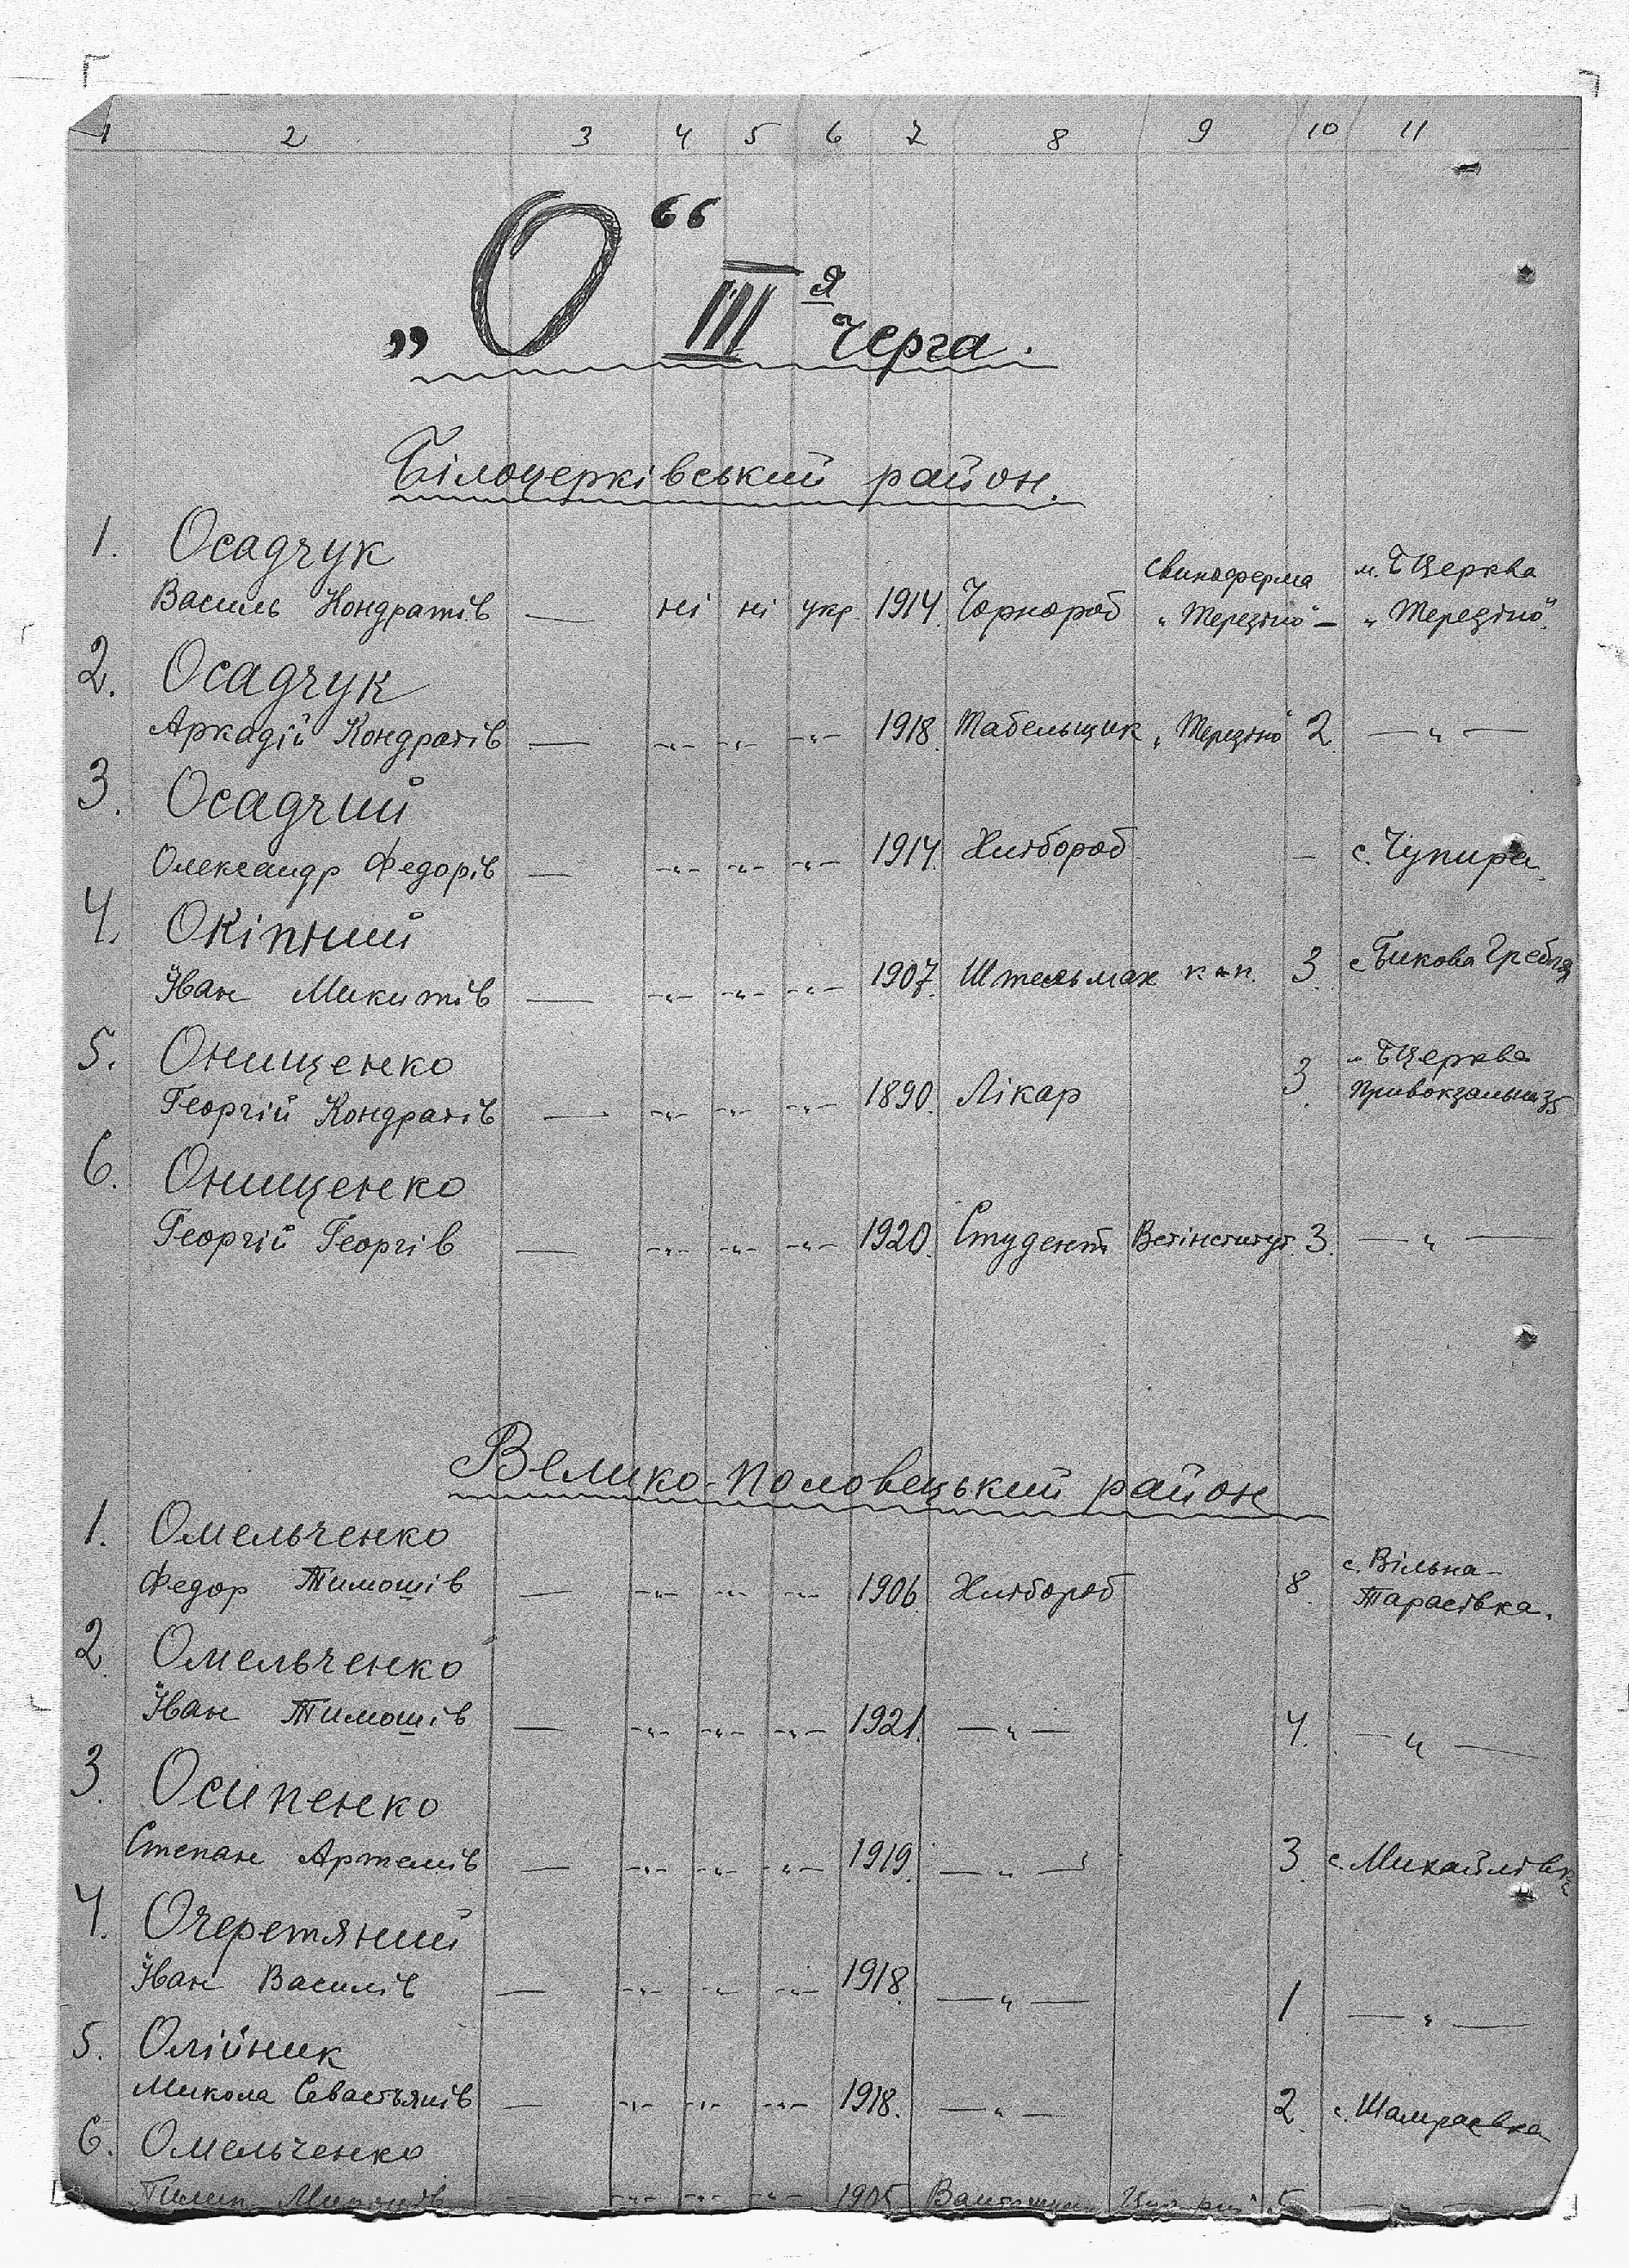 1 2 3 4 5 6 7 8 9 10 11
„О“ III я черга.
Білоцерківський район.
1. Осадчук
Василь Кондратів — ні ні укр. 1914. Чорнороб свиноферма „Терезіно“ — м. БЦерква „Терезіно“.
2. Осадчук
Аркадій Кондратів — -„- -„- -„- 1918. Табельщик „Терезіно“ 2. —„—
3. Осадчий
Олександр Федорів — -„- -„- -„- 1914. Хлібороб — с. Чупира.
4. Окіпний
Іван Микитів — -„- -„- -„- 1907. Штельмах 3. с. Бикова Гребля
5. Онищенко
Георгій Кондратів — -„- -„- -„- 1890. Лікар 3. м. БЦерква Привокзальна 35
6. Онищенко
Георгій Георгів — -„- -„- -„- 1920. Студент Ветінститут. 3. —„—
Велико-Половецький район
1. Омельченко
Федор Тимошів — -„- -„- -„- 1906. Хлібороб 8. с. Вільна-Тарасівка.
2. Омельченко
Іван Тимошів — -„- -„- -„- 1921. —„— 4. —„—
3. Осипенко
Степан Артемів — -„- -„- -„- 1919. —„— 3. с. Михайлівка
4. Очеретяний
Іван Василів — -„- -„- -„- 1918. —„— 1. —„—
5. Олійник
Микола Севастьянів — -„- -„- -„- 1918. —„— 2. с. Шамраєвка
6. Омельченко
Пилип -„- -„- -„- 1905 5 —„—